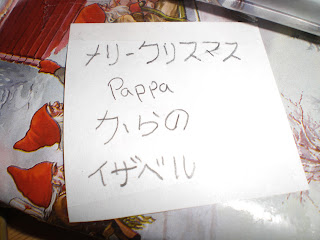 メリークリスマス
Pappa
からの
イザベル